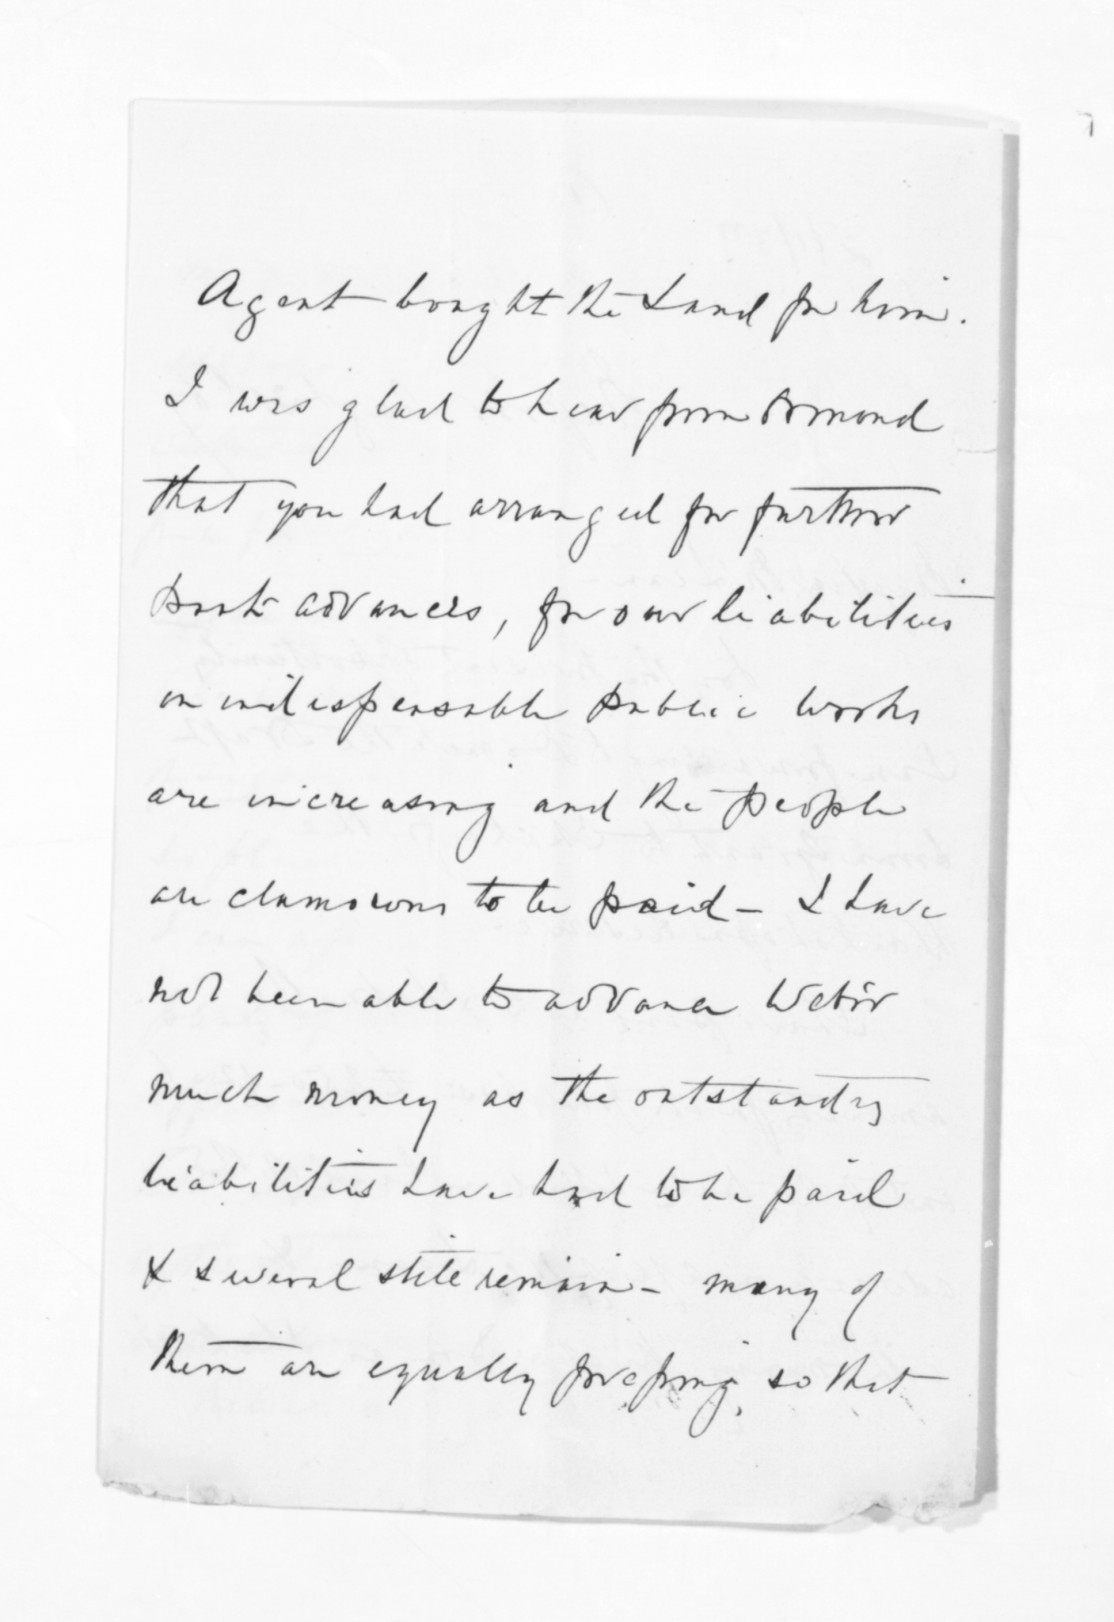 Agent bought the Land for him.
I was glad to hear from Ormond
that you had arranged for further
bank advances, for our liabilities
on indispensable public works
are increasing and the people
are clamorous to be paid - I have
not been able to advance Weber
much money as the outstandg
liabilities have had to be paid
& several still remain - many of
them are equally pressing, so that